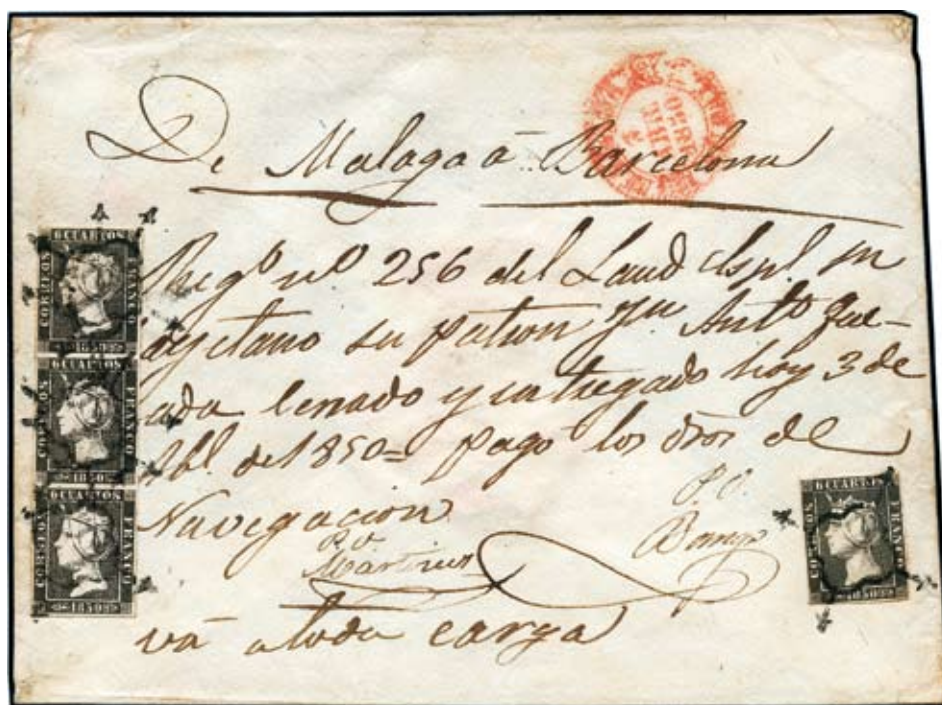 De Malaga á Barcelona
Reg.º nº 256 del Laud Espl. Sn
Cayetano su patron Jn. Antº Que-
ada lenado y entregado hoy 3 de
Abl. de 1850= pagó los dros de
Navegacion
P.O.
P.O.
Martinez
va a toda carga
6 CUARTOS
CORREOS
FRANCO
1850
6 CUARTOS
CORREOS
FRANCO
1850
6 CUARTOS
CORREOS
FRANCO
1850
6 CUARTOS
CORREOS
FRANCO
1850